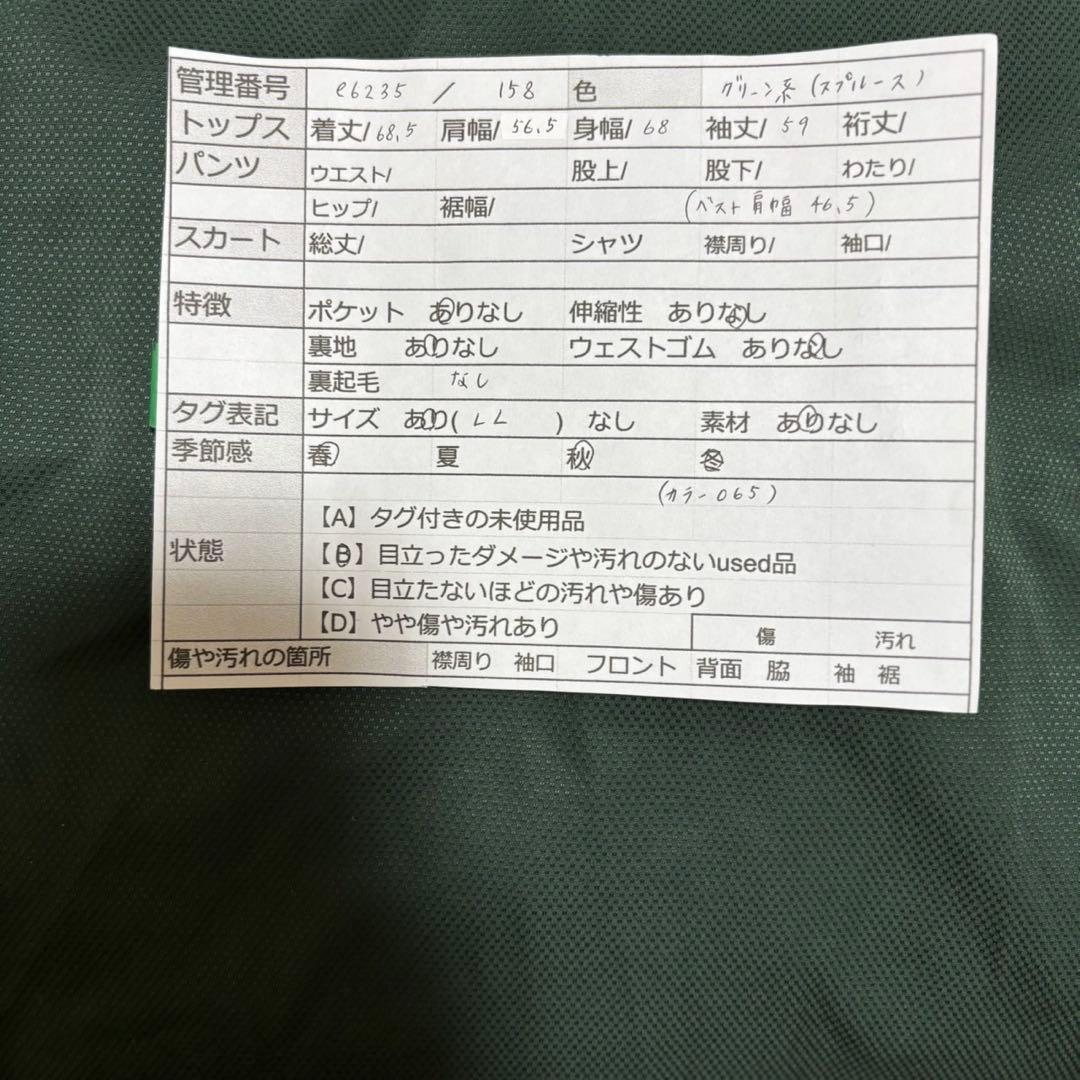 管理番号 e6235 / 158 色 グリーン系(スプルース)
トップス 着丈/68.5 肩幅/56.5 身幅/68 袖丈/59 裄丈/
パンツ ウエスト/ 股上/ 股下/ わたり/
ヒップ/ 裾幅/ (ベスト肩幅 46.5)
スカート 総丈/ シャツ 襟周り/ 袖口/
特徴 ポケット ありなし 伸縮性 ありなし
裏地 ありなし ウェストゴム ありなし
裏起毛 なし
タグ表記 サイズ あり( LL ) なし 素材 ありなし
季節感 春 夏 秋 冬
(カラー065)
【A】タグ付きの未使用品
状態 【B】目立ったダメージや汚れのないused品
【C】目立たないほどの汚れや傷あり
【D】やや傷や汚れあり 傷 汚れ
傷や汚れの箇所 襟周り 袖口 フロント 背面 脇 袖 裾